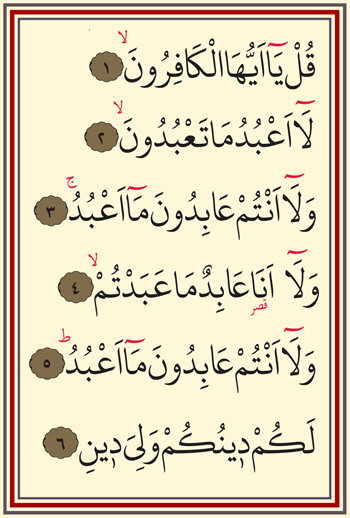 قُلْ يَٓا اَيُّهَا الْكَافِرُونَۙ ﴿١﴾
لَٓا اَعْبُدُ مَا تَعْبُدُونَۙ ﴿٢﴾
وَلَٓا اَنْتُمْ عَابِدُونَ مَٓا اَعْبُدُۚ ﴿٣﴾
وَلَٓا اَنَا۬ عَابِدٌ مَا عَبَدْتُمْۙ ﴿٤﴾ قصر
وَلَٓا اَنْتُمْ عَابِدُونَ مَٓا اَعْبُدُۜ ﴿٥﴾
لَكُمْ دٖينُكُمْ وَلِيَ دٖينِ ﴿٦﴾